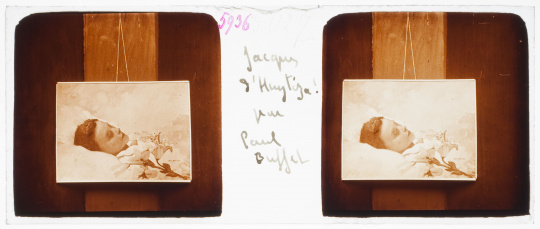 5936
Jacques
par
Paul
Buffet